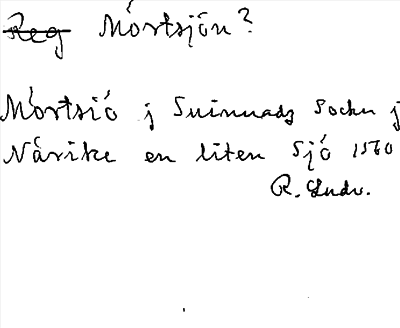 Reg Mörtsjön?
Mörtsiö j Suinnadz Sochn j
Närike en liten Sjö 1560
R. Ludv.